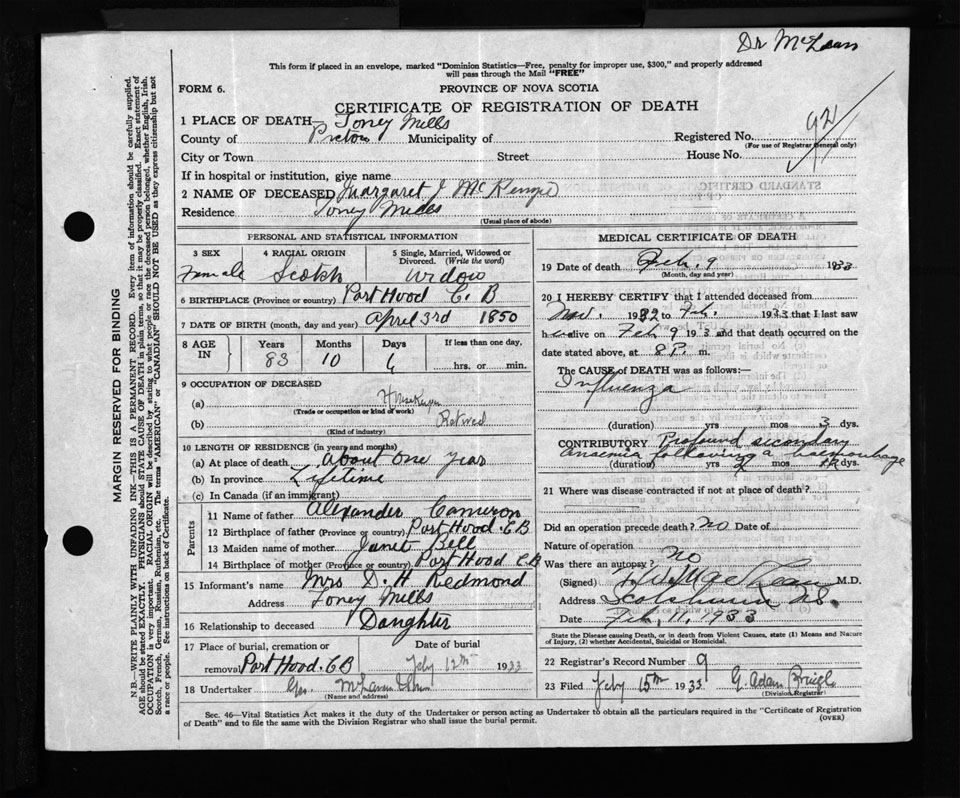 Dr McLean
This form if placed in an envelope, marked "Dominion Statistics—Free, penalty for improper use, $300," and properly addressed
will pass through the Mail "FREE"
FORM 6.
PROVINCE OF NOVA SCOTIA
CERTIFICATE OF REGISTRATION OF DEATH
1 PLACE OF DEATH— Toney Mills
County of Pictou Municipality of Registered No. 92
(For use of Registrar General only)
City or Town Street House No.
If in hospital or institution, give name
2 NAME OF DECEASED Margaret J McKenzie
Residence Toney Mills
(Usual place of abode)
PERSONAL AND STATISTICAL INFORMATION
3 SEX 4 RACIAL ORIGIN 5 Single, Married, Widowed or
Divorced. (Write the word)
Female Scotch Widow
6 BIRTHPLACE (Province or country) Port Hood C. B
7 DATE OF BIRTH (month, day and year) April 3rd 1850
8 AGE IN Years Months Days If less than one day,
83 10 6 hrs. or min.
9 OCCUPATION OF DECEASED
(a) Housekeeper
(Trade or occupation or kind of work)
(b) Retired
(Kind of industry)
10 LENGTH OF RESIDENCE (in years and months)
(a) At place of death About one year
(b) In province Lifetime
(c) In Canada (if an immigrant)
Parents
11 Name of father Alexander Cameron
12 Birthplace of father (Province or country) Port Hood C B
13 Maiden name of mother Janet Bell
14 Birthplace of mother (Province or country) Port Hood C B
15 Informant's name Mrs D. H. Redmond
Address Toney Mills
16 Relationship to deceased Daughter
17 Place of burial, cremation or Date of burial
removal Port Hood. C B Feby 12th 1933
18 Undertaker Geo.
(Name and address)
MEDICAL CERTIFICATE OF DEATH
19 Date of death Feb. 9 1933
(Month, day and year)
20 I HEREBY CERTIFY that I attended deceased from
Nov. 1932 to Feb. 1933 that I last saw
h alive on Feb 9 193 3 and that death occurred on the
date stated above, at 8 P. m.
The CAUSE of DEATH was as follows:—
Influenza
(duration) yrs mos 3 dys.
CONTRIBUTORY Profound secondary
Anaemia following a haemorrhage
(duration) yrs 2 mos dys.
21 Where was disease contracted if not at place of death?
Did an operation precede death? NO Date of
Nature of operation
Was there an autopsy? NO
(Signed) M.D.
Address Scotsburn N.S.
Date Feb. 11, 1933
State the Disease causing Death, or in death from Violent Causes, state (1) Means and Nature
of Injury, (2) whether Accidental, Suicidal or Homicidal.
22 Registrar's Record Number 9
23 Filed Feby 15th 1933 G. Adam
(Division Registrar)
Sec. 46—Vital Statistics Act makes it the duty of the Undertaker or person acting as Undertaker to obtain all the particulars required in the "Certificate of Registration
of Death" and to file the same with the Division Registrar who shall issue the burial permit.
(OVER)
MARGIN RESERVED FOR BINDING
N.B.—WRITE PLAINLY WITH UNFADING INK—THIS IS A PERMANENT RECORD. Every item of information should be carefully supplied.
AGE should be stated EXACTLY. PHYSICIANS should STATE CAUSE OF DEATH in plain terms, so that it may be properly classified. Exact statement of
OCCUPATION is very important. RACIAL ORIGIN will be described by stating to what people or race the deceased person belonged, whether English, Irish,
Scotch, French, German, Russian, Ruthenian, etc. The terms "AMERICAN" or "CANADIAN" SHOULD NOT BE USED as they express citizenship but not
a race or people. See instructions on back of Certificate.